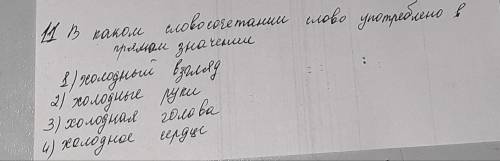 11 В каком словосочетании слово употреблено в
прямом значении
1) холодный взгляд
2) холодные руки
3) холодная голова
4) холодное сердце